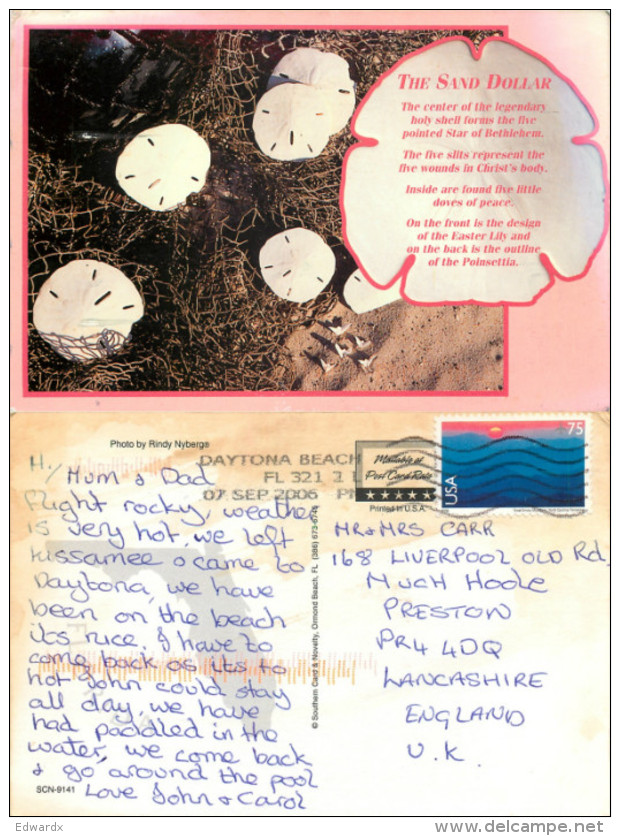 THE SAND DOLLAR
The center of the legendary
holy shell forms the five
pointed Star of Bethlehem.
The five slits represent the
five wounds in Christ's body.
Inside are found five little
doves of peace.
On the front is the design
of the Easter Lily and
on the back is the outline
of the Poinsettia.
Photo by Rindy Nyberg
DAYTONA BEACH
FL 321 1 L
07 SEP 2006 PM
Mailable at
Post Card Rate
Printed in U.S.A.
75
USA
Hi/ Mum & Dad
Flight rocky, weather
is very hot, we left
Kissamee & came to
Daytona, we have
been on the beach
its nice, & have to
come back as its to
hot John could stay
all day, we have
had paddled in the
water, we come back
& go around the pool
Love John & Carol
SCN-9141
© Southern Card & Novelty, Ormond Beach, FL (386)
MR & MRS CARR
168 LIVERPOOL OLD Rd.
MUCH HOOLE
PRESTON
PR4 4DQ
LANCASHIRE
ENGLAND
U.K.
Edwardx
www.delcampe.net